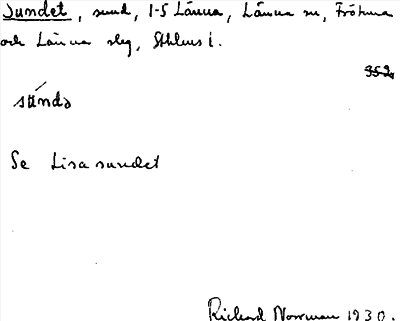 Sundet, sund, 1-5 Länna, Länna sn, Frötuna
och Länna slg, Sthlms l.
352
sún̄də
Se Lisasundet
Richard Norrman 1930.